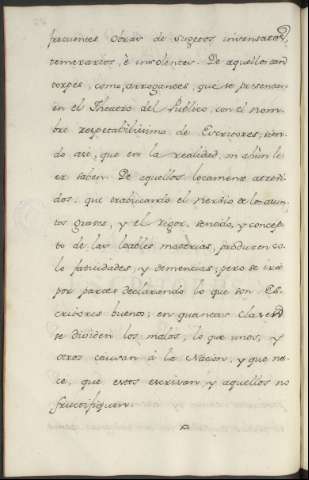 frecuentes Obras de Sugetos insensatos,
temerarios, è insolentes. De aquellos tan
torpes, como arrogantes, que se presentan
en el Theatro del Publico, con el nom-
bre respetabilissimo de Escritores, sien-
do asi, que en la realidad, ni aùn le-
er saben. De aquellos locamente atrevi-
dos, que trabucando el Nervio de los asun-
tos graves, y el rigor, sentido, y concep-
to de las loables materias, producen so-
lo fatuidades, y demencias; pero se irà
por partes declarando lo que son Es-
critores buenos; en quantas Clases
se dividen los malos; lo que unos, y
otros causan à la Nacion, y que na-
ce, que estos escrivan, y aquellos no
fructifiquen.